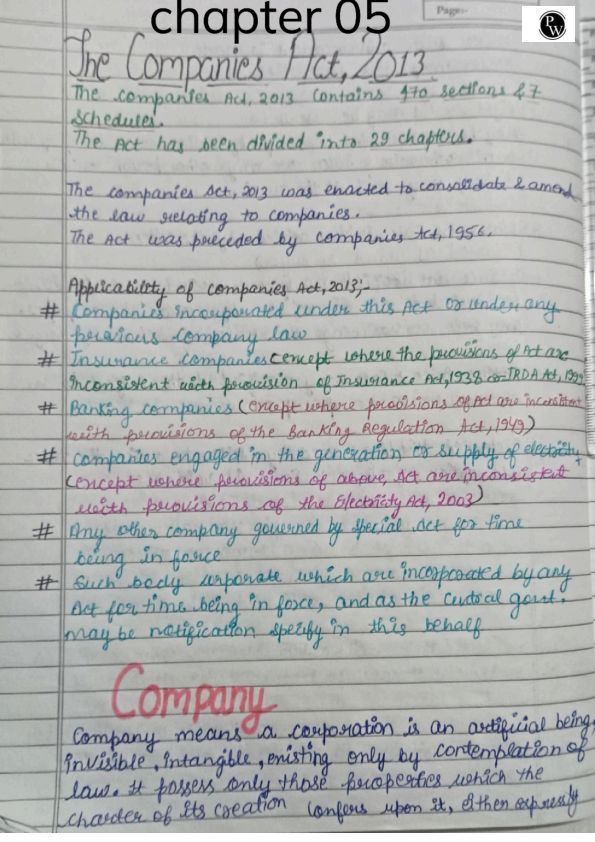 chapter 05
Page:-
PW
The Companies Act, 2013
The companies Act, 2013 contains 470 sections & 7
Schedules.
The Act has been divided into 29 chapters.
The companies Act, 2013 was enacted to consolidate & amend
the law relating to companies.
The Act was preceded by companies Act, 1956.
Applicability of companies Act, 2013;-
# Companies incorporated under this Act or under any
previous company law
# Insurance companies (except where the provisions of Act are
inconsistent with provision of Insurance Act, 1938 or IRDA Act, 1999
# Banking companies (except where provisions of Act are inconsistent
with provisions of the Banking Regulation Act, 1949)
# Companies engaged in the generation or supply of electricity
(except where provisions of above Act are inconsistent
with provisions of the Electricity Act, 2003)
# Any other company governed by special Act for time
being in force
# Such body corporate which are incorporated by any
Act for time being in force, and as the central govt.
may be notification specify in this behalf
Company
Company means a corporation is an artificial being,
invisible, intangible, existing only by contemplation of
law. It possess only those properties which the
charder of its creation confers upon it, either expressly